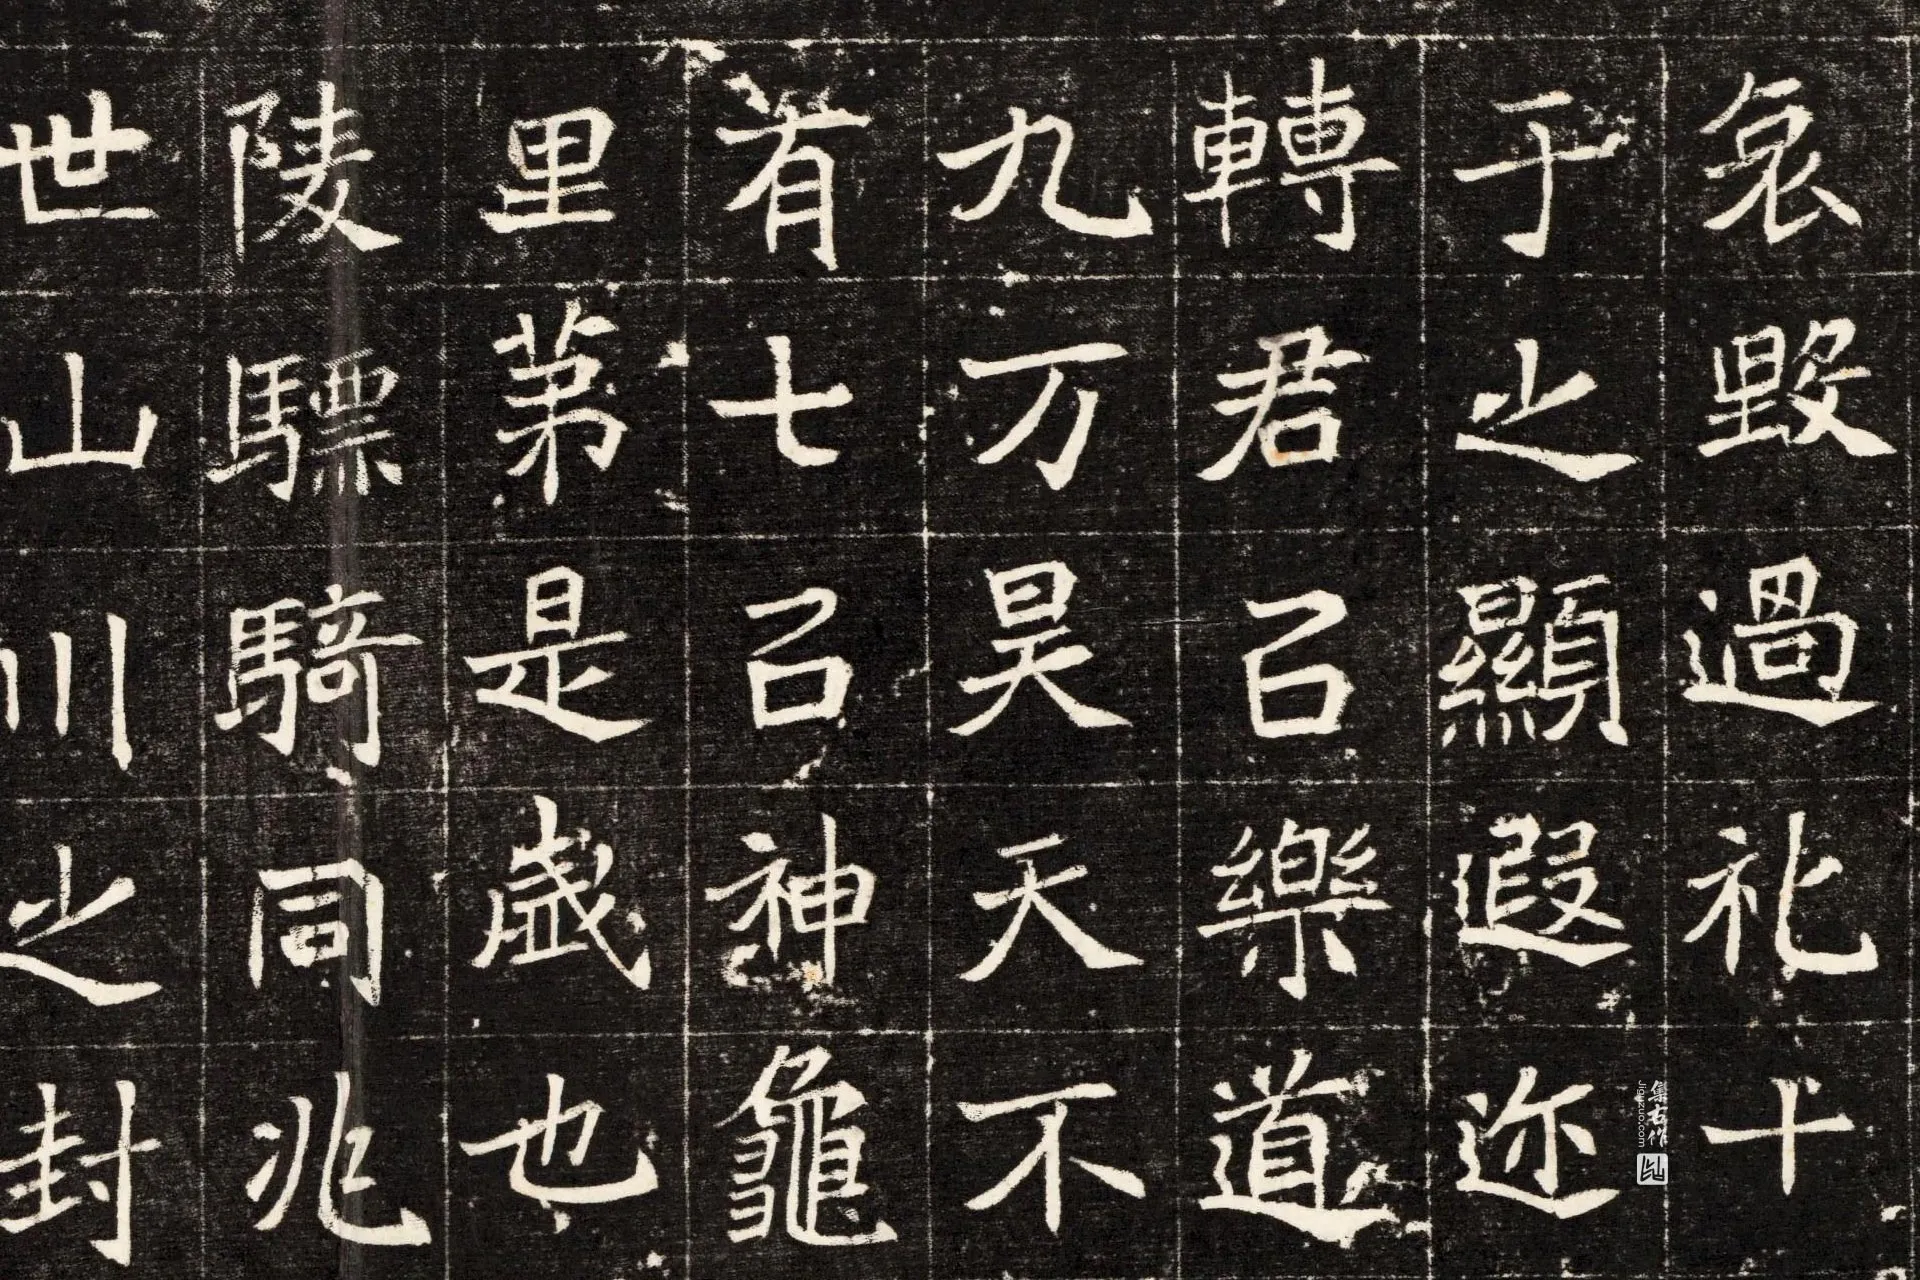 哀毀過礼十
于之顯遐迩
轉君召樂道
九万昊天不
有七召神龜
里苐是歲也
陵驃騎同兆
世山川之封
集古作
Jiguzuo.com